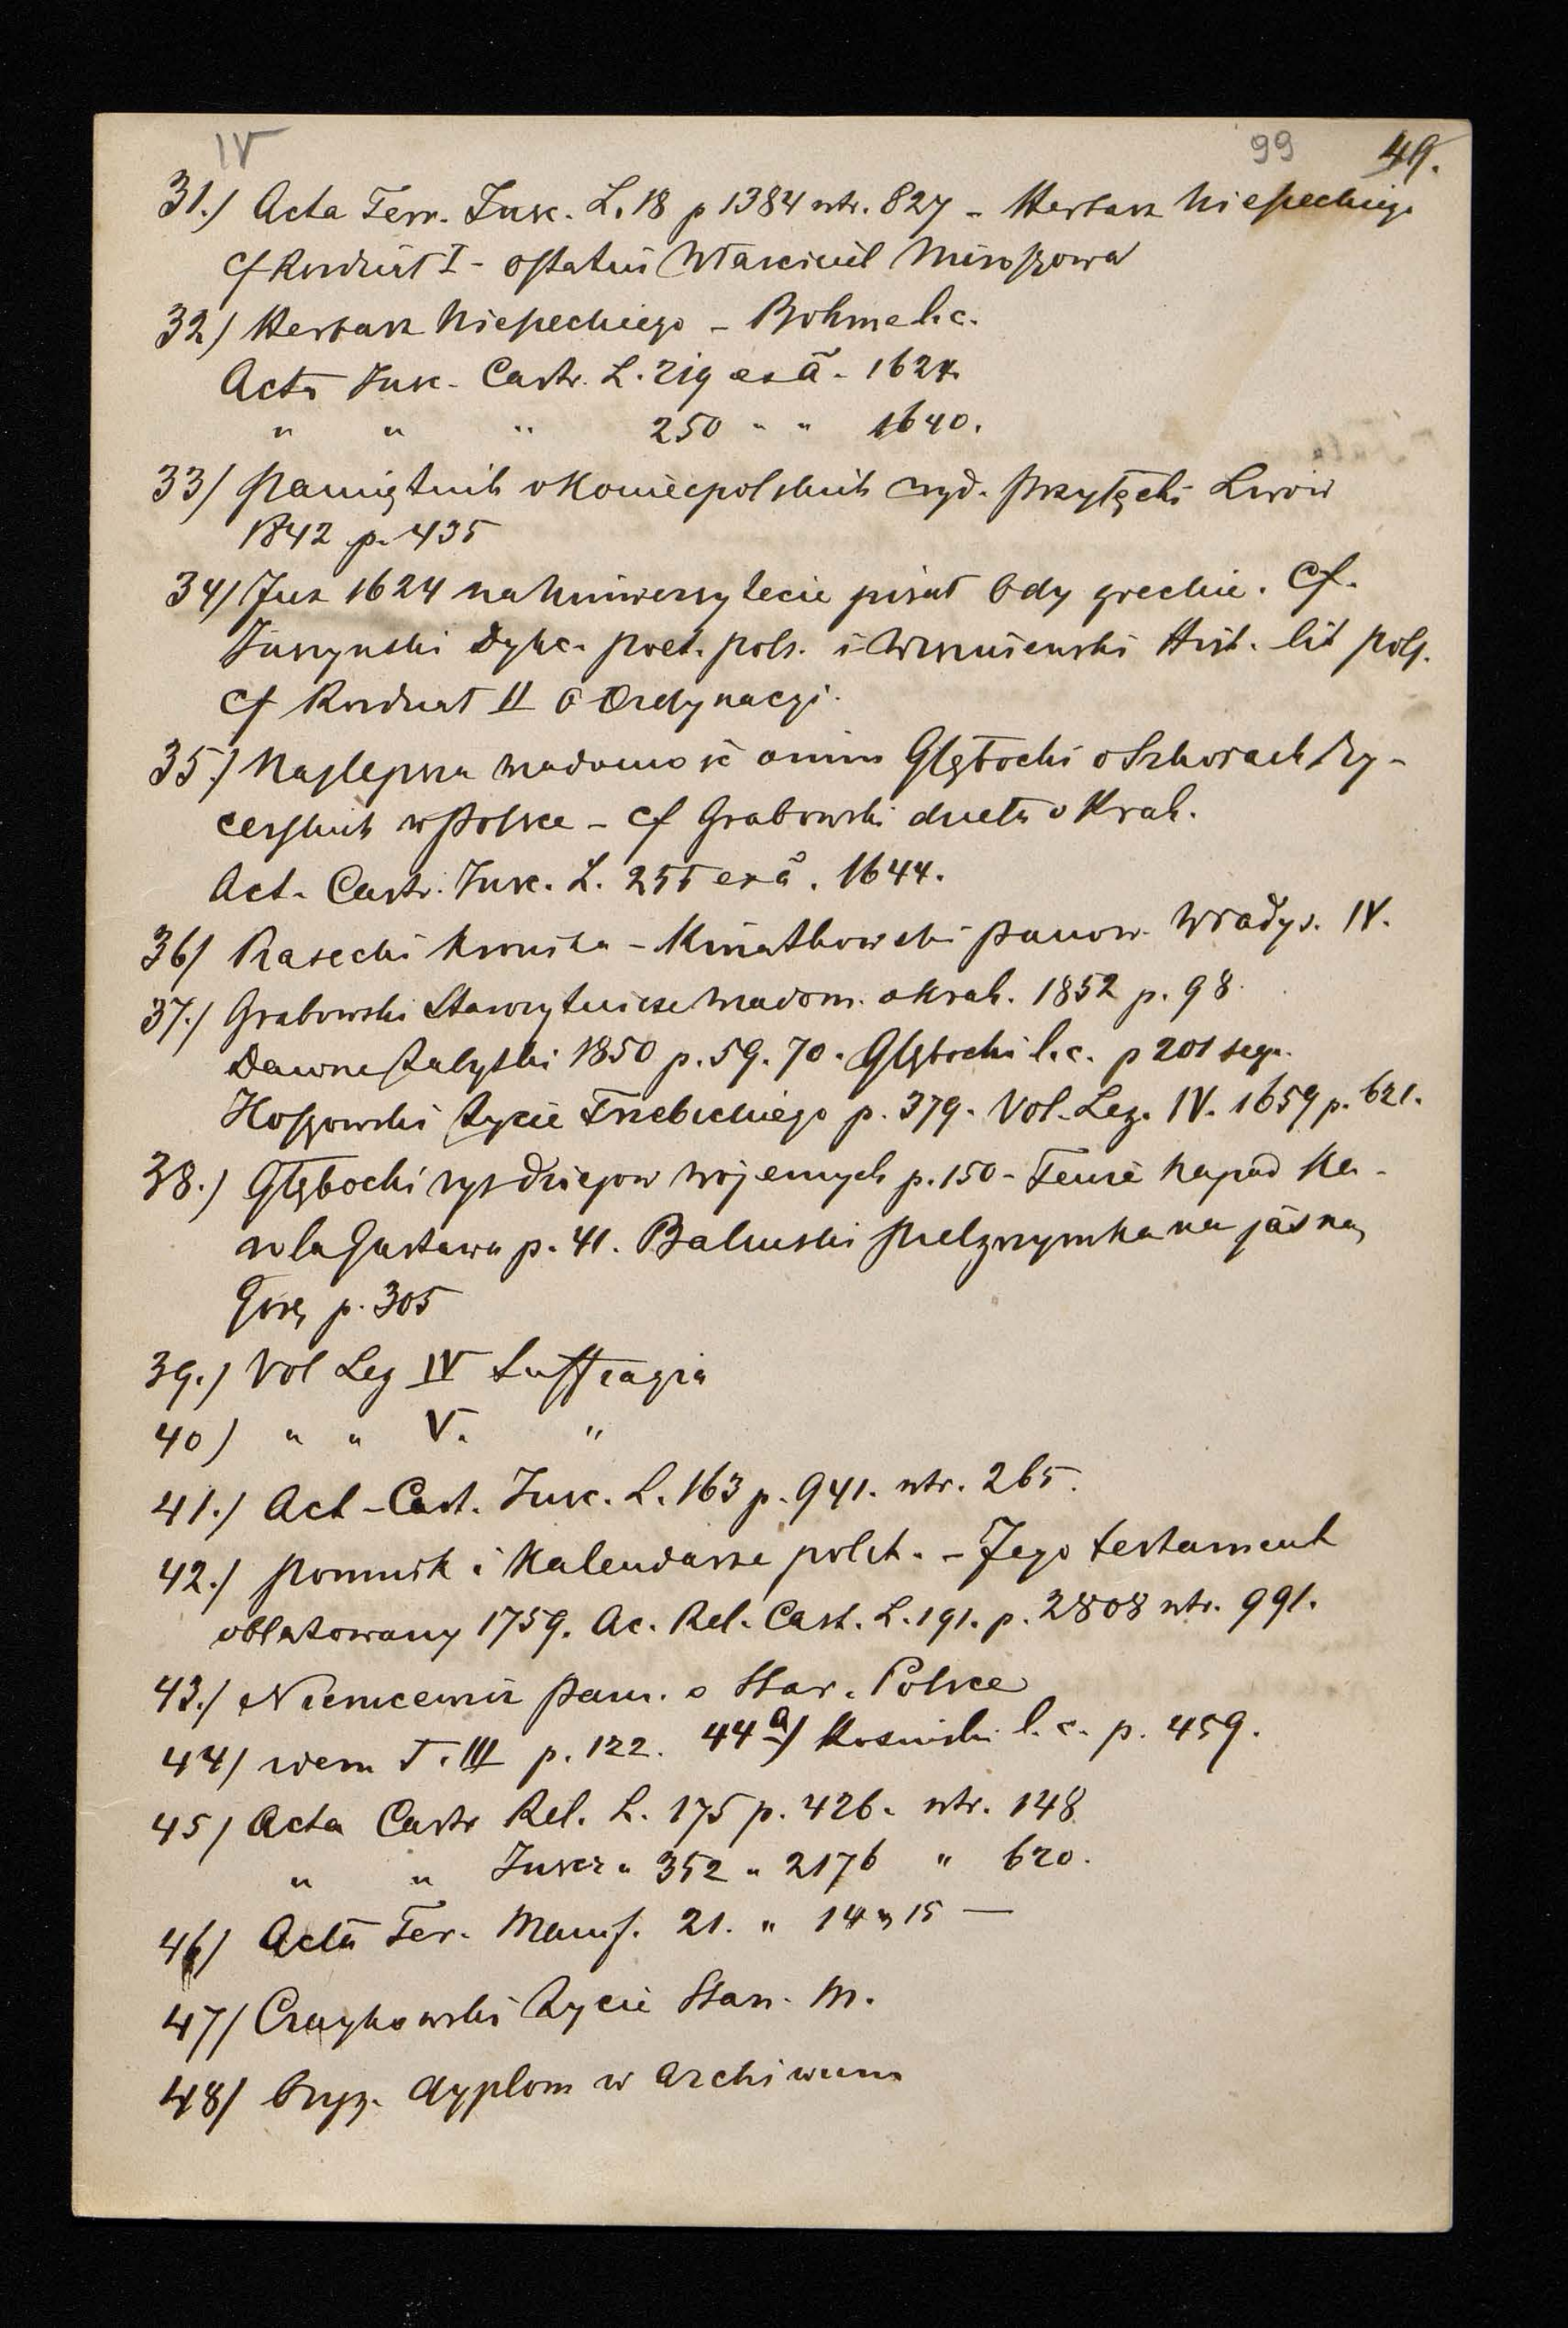 IV 99 49.
31.) Acta Terr. Insc. L. 18 p 1384 ntr. 827 - Herbarz Niesieckiego
cf Rozdział I - ostatni właściciel Miroszowa
32) Herbarz Niesieckiego - Bohme l.c.
Acta Insc. Castr. L. 219 ex a. 1624.
" " " 250 " " 1640.
33) Pamiętnik o Koniecpolskich wyd. Przyłęcki Lwów
1842 p. 435
34) Juz 1624 na Uniwersytecie pisał Ody greckie. Cf.
Juszynski Dykc. poet. pols. i Wiszniewski Hist. lit pols.
cf Rozdział II o Ordynacyi.
35.) Najlepsza wiadomość o nim Głębocki o Szkołach Ry-
cerskich w Polsce - cf Grabowski dzieła o Krak.
Act. Castr. Insc. L. 255 ex a. 1644.
36) Piasecki Kronika - Kwiatkowski panow. Władys. IV.
37.) Grabowski Starożytnicze wiadom. o Krak. 1852 p. 98.
Dawne zabytki 1850 p. 59. 70. Głębocki l.c. p 201 seq.
Hoszowski Życie Trzebickiego p. 379. Vol. Leg. IV. 1659 p. 621.
38.) Głębocki rys dziejów wojennych p. 150 - Tenże Napad Ka-
rola Gustawa p. 41. Balinski Pielgrzymka na jasną
Górę p. 305
39.) Vol Leg IV Suffragia
40) " " V. "
41.) Act - Cast. Insc. L. 163 p. 941. ntr. 265.
42.) Pomnik i Kalendarze polit. - Jego testament
oblatowany 1759. Ac. Rel. Cast. L. 191. p. 2808 ntr. 991.
43.) Niemcewicz Pam. o Star. Polsce
44) idem T. III p. 122. 44a) Kosinski l.c. p. 459.
45) Acta Castr Rel. L. 175 p. 426. ntr. 148
" " Inscr " 352 " 2176 " 620.
46) Acta Ter. 21. " 14 15 —
47) Czaykowski Życie Stan. M.
48) Oryg. dyplom w archiwum